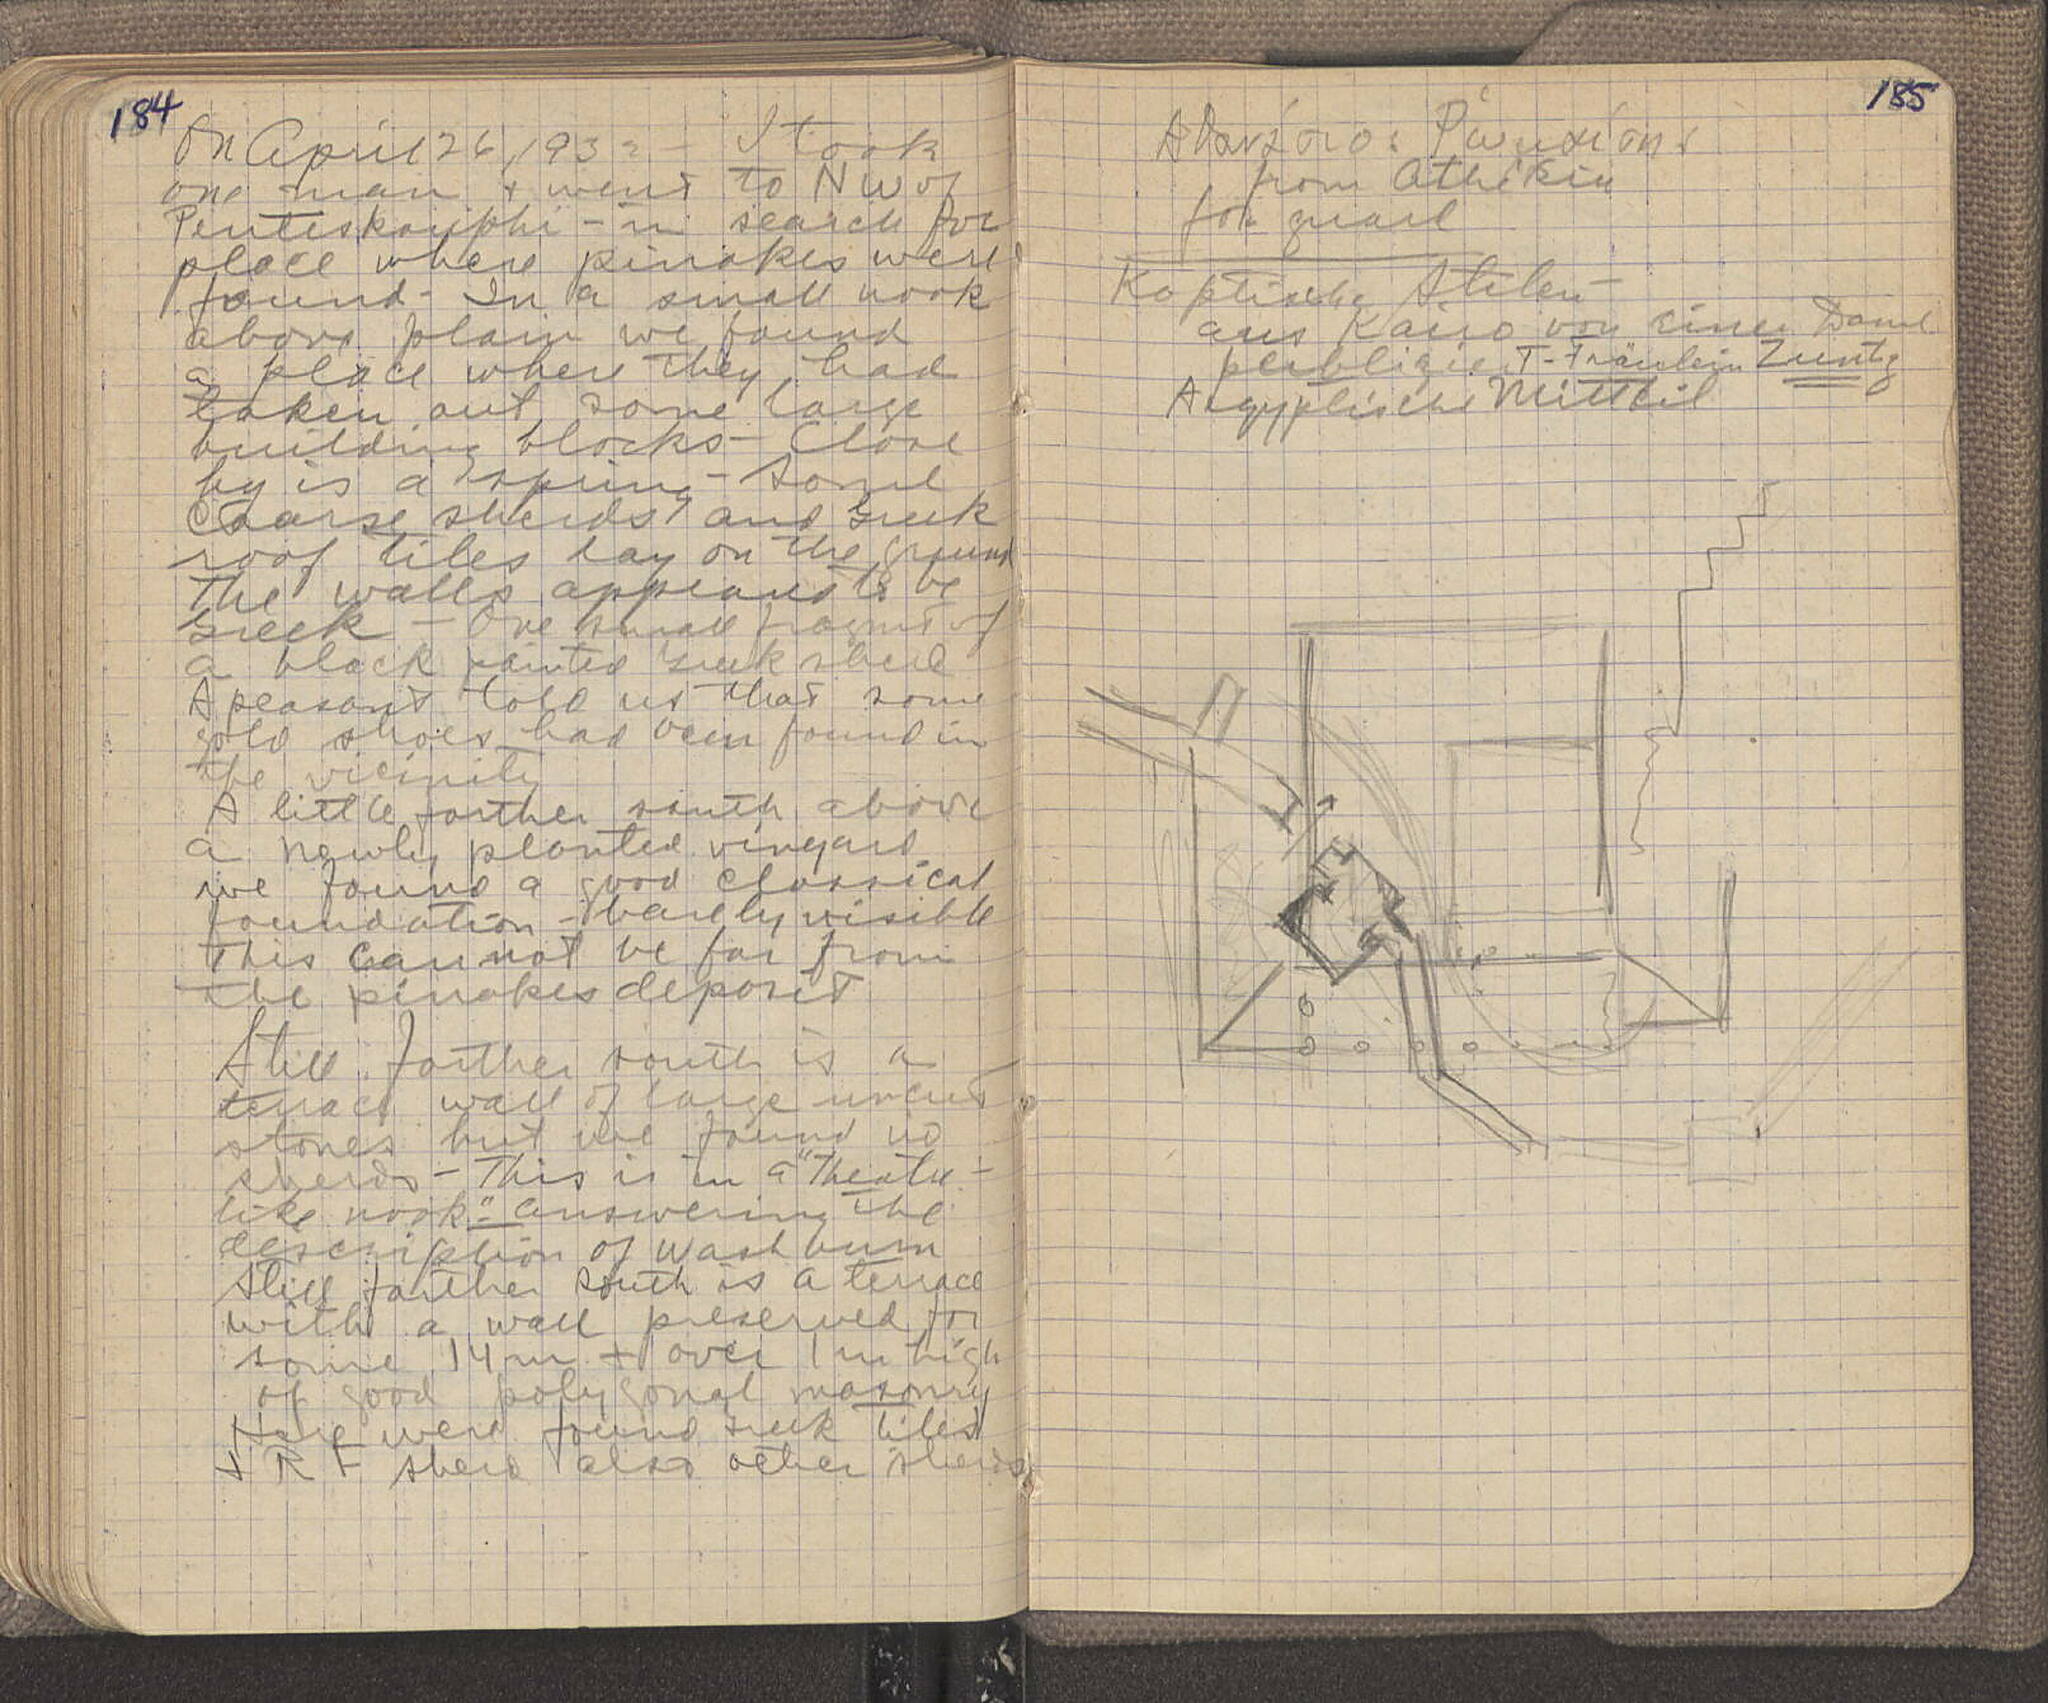 184
On April 26, 193 - I took
one man + went to NW of
Penteskouphi - in search for
place where pinakes were
found - In a small nook
above plain we found
a place where they had
taken out some large
building blocks - Close
by is a spring - Some
Coarse sherds and Greek
roof tiles lay on the ground
The walls appeared to be
Greek - One small fragmt of
a black painted Greek sherd
A peasant told us that some
gold shoes had been found in
the vicinity
A little farther south above
a newly planted vinyard
we found a good classical
foundation - barely visible
This cannot be far from
the pinakes deposit
Still farther south is a
terrace wall of large uncut
stones but we found no
sherds - This is in a "Theatre -
like nook" - answering the
description of Washburn
Still farther south is a terrace
with a wall preserved for
some 14 m + over 1 m high
of good polygonal masonry
Here were found Greek tiles
+ R F sherd also other sherds
185
from Athikia
for guard
Koptische Stelen -
aus Kairo von einer Dame
publiziert - Fräulein Zuntz
Aegyptische Mitteil